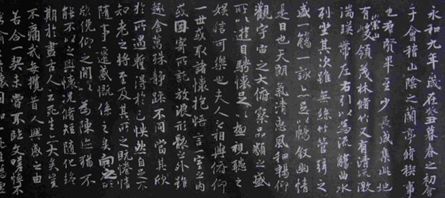 永和九年歲在癸丑暮春之初會
于會稽山陰之蘭亭脩稧事
也羣賢畢至少長咸集此地
有崇山峻領茂林脩竹又有清流激
湍暎帶左右引以為流觴曲水
列坐其次雖無絲竹管弦之
盛一觴一詠亦足以暢敘幽情
是日也天朗氣清惠風和暢仰
觀宇宙之大俯察品類之盛
所以遊目騁懷足以極視聽之
娛信可樂也夫人之相與俯仰
一世或取諸懷抱悟言一室之內
或因寄所託放浪形骸之外雖
趣舍萬殊靜躁不同當其欣
於所遇暫得於己快然自足不
知老之將至及其所之既惓情
隨事遷感慨係之矣向之所
欣俛仰之間以為陳迹猶不
能不以之興懷況脩短隨化終
期於盡古人云死生亦大矣豈
不痛哉每攬昔人興感之由
若合一契未嘗不臨文嗟悼不